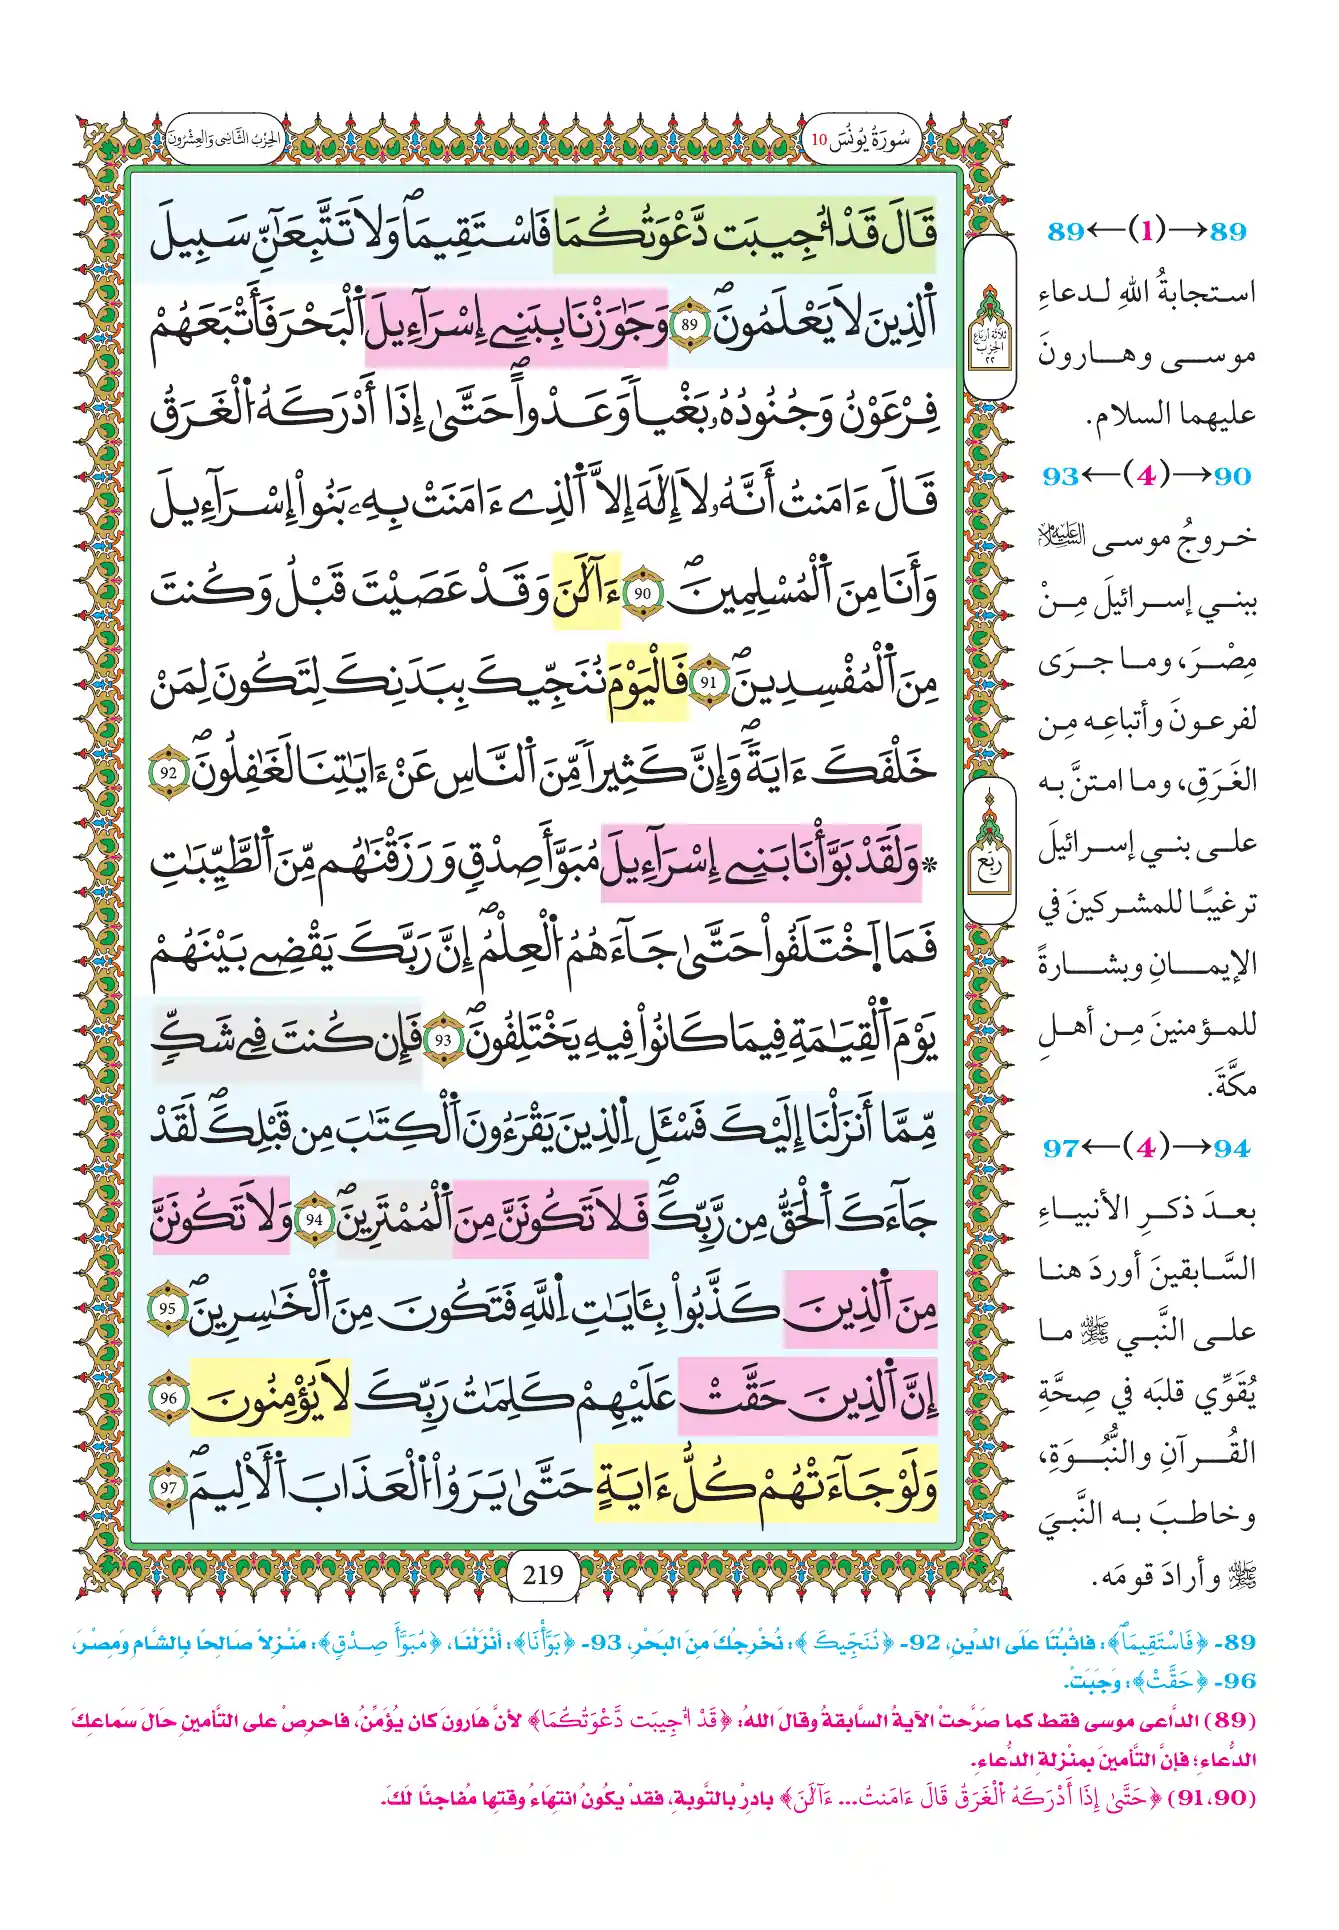 سُورَةُ يُونُسَ 10
الحِزْبُ الثَّانِي وَالعِشْرُونَ
قَالَ قَدُ ا۟جِيبَت دَّعْوَتُكُمَا فَاسْتَقِيمَاۖ وَلَا تَتَّبِعَآنِّ سَبِيلَ
اَ۬لذِينَ لَا يَعْلَمُونَۖ 89 وَجَٰوَزْنَا بِبَنِےٓ إِسْرَآءِيلَ اَ۬لْبَحْرَ فَأَتْبَعَهُمْ
فِرْعَوْنُ وَجُنُودُهُۥ بَغْياٗ وَعَدْواًۖ حَتَّىٰٓ إِذَآ أَدْرَكَهُ اُ۬لْغَرَقُ
قَالَ ءَامَنتُ أَنَّهُۥ لَآ إِلَٰهَ إِلَّا اَ۬لذِےٓ ءَامَنَتْ بِهِۦ بَنُوٓاْ إِسْرَآءِيلَ
وَأَنَا مِنَ اَ۬لْمُسْلِمِينَۖ 90 ءَآلَٰنَ وَقَدْ عَصَيْتَ قَبْلُ وَكُنتَ
مِنَ اَ۬لْمُفْسِدِينَۖ 91 فَالْيَوْمَ نُنَجِّيكَ بِبَدَنِكَ لِتَكُونَ لِمَنْ
خَلْفَكَ ءَايَةٗۖ وَإِنَّ كَثِيراٗ مِّنَ اَ۬لنَّاسِ عَنْ ءَايَٰتِنَا لَغَٰفِلُونَۖ 92
* وَلَقَدْ بَوَّأْنَا بَنِےٓ إِسْرَآءِيلَ مُبَوَّأَ صِدْقٖ وَرَزَقْنَٰهُم مِّنَ اَ۬لطَّيِّبَٰتِ
فَمَا اَ۪خْتَلَفُواْ حَتَّىٰ جَآءَهُمُ اُ۬لْعِلْمُۖ إِنَّ رَبَّكَ يَقْضِے بَيْنَهُمْ
يَوْمَ اَ۬لْقِيَٰمَةِ فِيمَا كَانُواْ فِيهِ يَخْتَلِفُونَۖ 93 فَإِن كُنتَ فِے شَكّٖ
مِّمَّآ أَنزَلْنَآ إِلَيْكَ فَسْـَٔلِ اِ۬لذِينَ يَقْرَءُونَ اَ۬لْكِتَٰبَ مِن قَبْلِكَۖ لَقَدْ
جَآءَكَ اَ۬لْحَقُّ مِن رَّبِّكَۖ فَلَا تَكُونَنَّ مِنَ اَ۬لْمُمْتَرِينَۖ 94 وَلَا تَكُونَنَّ
مِنَ اَ۬لذِينَ كَذَّبُواْ بِـَٔايَٰتِ اِ۬للَّهِ فَتَكُونَ مِنَ اَ۬لْخَٰسِرِينَۖ 95
إِنَّ اَ۬لذِينَ حَقَّتْ عَلَيْهِمْ كَلِمَٰتُ رَبِّكَ لَا يُؤْمِنُونَ 96
وَلَوْ جَآءَتْهُمْ كُلُّ ءَايَةٍ حَتَّىٰ يَرَوُاْ اُ۬لْعَذَابَ اَ۬لْأَلِيمَۖ 97
219
ثلاثة أرباع
الحزب
٢٢
ربع
89←(1)→89
استجابةُ اللهِ لدعاءِ
موسى وهارونَ
عليهما السلام.
90←(4)→93
خروجُ موسى عليه السلام
ببني إسرائيلَ مِنْ
مِصْرَ، وما جرَى
لفرعونَ وأتباعِه مِن
الغَرَقِ، وما امتنَّ به
على بني إسرائيلَ
ترغيبًا للمشركينَ في
الإيمانِ وبشارةً
للمؤمنينَ مِن أهلِ
مكَّةَ.
94←(4)→97
بعدَ ذكرِ الأنبياءِ
السَّابقينَ أوردَ هنا
على النَّبي ﷺ ما
يُقَوِّي قلبَه في صِحَّةِ
القُرآنِ والنُّبُوَّةِ،
وخاطبَ به النَّبيَ
ﷺ وأرادَ قومَه.
89- ﴿فَاسْتَقِيمَاۖ﴾: فاثْبُتَا عَلَى الدِّينِ، 92- ﴿نُنَجِّيكَ﴾: نُخْرِجُكَ مِنَ البَحْرِ، 93- ﴿بَوَّأْنَا﴾: أنْزَلْنَا، ﴿مُبَوَّأَ صِدْقٖ﴾: مَنْزِلاً صَالحًا بِالشَّام وَمِصْرَ،
96- ﴿حَقَّتْ﴾: وَجَبَتْ.
(89) الدَّاعي موسى فقط كما صَرَّحتْ الآيةُ السَّابقةُ وقالَ اللهُ: ﴿قَدُ ا۟جِيبَت دَّعْوَتُكُمَا﴾ لأنَّ هَارونَ كان يُؤَمِّنُ، فاحرِصْ على التَّأمينِ حَالَ سَماعِكَ
الدُّعاءِ؛ فإنَّ التَّأمينَ بمنْزلةِ الدُّعاءِ.
(91،90) ﴿حَتَّىٰٓ إِذَآ أَدْرَكَهُ اُ۬لْغَرَقُ قَالَ ءَامَنتُ... ءَآلَٰنَ﴾ بادِرْ بالتَّوبةِ، فقدْ يكُونُ انتهَاءُ وقتِها مُفاجئًا لَكَ.